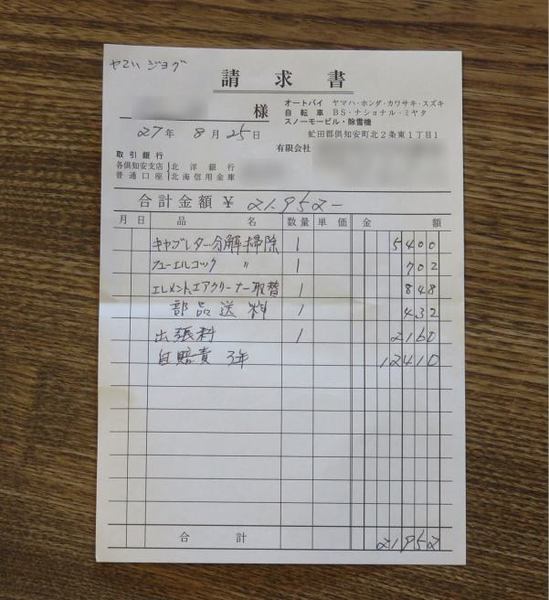 ヤマハ ジョグ
請求書
様
27年 8月25日
オートバイ ヤマハ・ホンダ・カワサキ・スズキ
自転車 BS・ナショナル・ミヤタ
スノーモービル・除雪機
虻田郡倶知安町北2条東1丁目1
有限会社
取引銀行
各倶知安支店 北洋銀行
普通口座 北海信用金庫
合計金額 ¥ 21.952-
月 日 品名 数量 単価 金額
キャブレター分解掃除 1 5400
フューエルコック 〃 1 702
エレメントエアクリーナー取替 1 848
部品送料 1 432
出張料 1 2160
自賠責 3年 12410
合計 21952